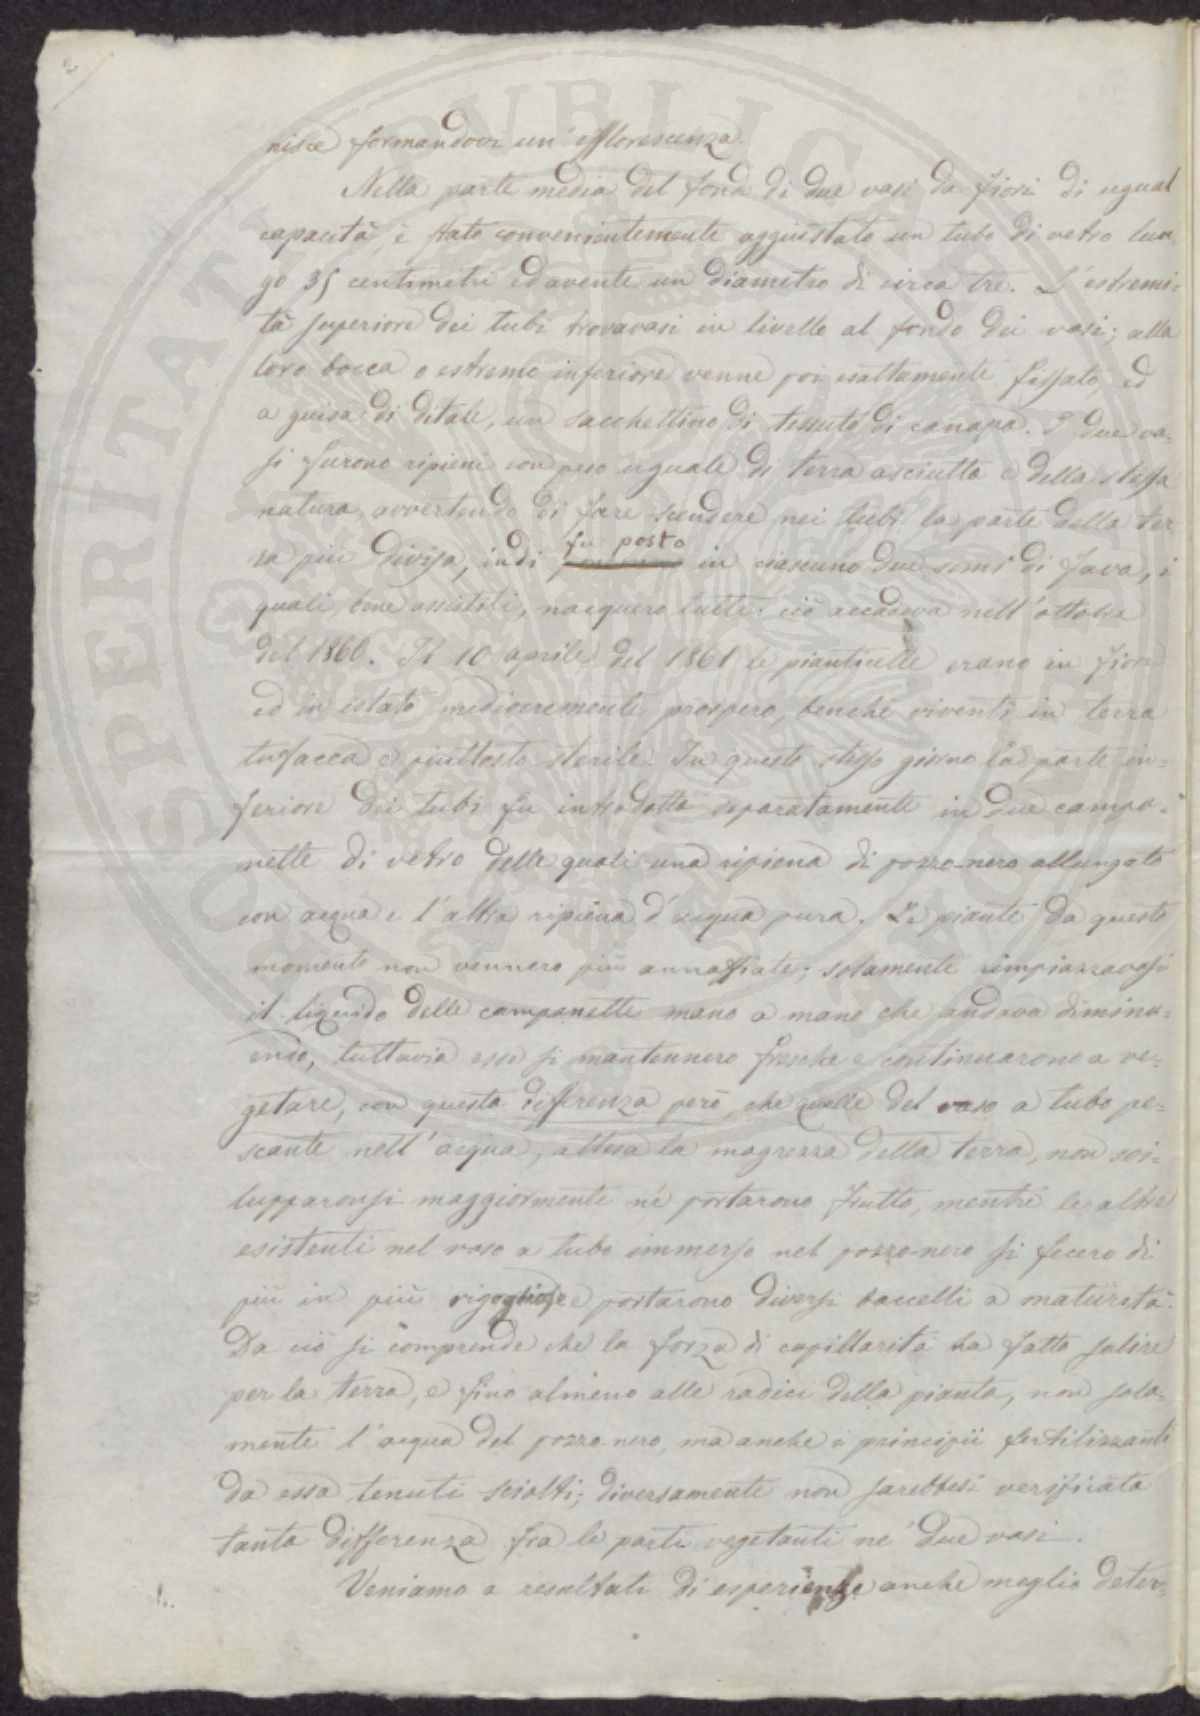 2
nisce formandovi un' efflorescenza.
Nella parte media del fondo di due vasi da fiori di egual
capacità, è stato convenientemente aggiustato un tubo di vetro lun
go 35 centimetri ed avente un diametro di circa tre. L'estremi=
tà superiore dei tubi trovavasi in livello al fondo dei vasi; alla
loro bocca o estremo inferiore venne poi esattamente fissato, ed
a guisa di ditale, un sacchettino di tessuto di canapa. I due va=
si furono ripieni con peso uguale di terra asciutta e della stessa
natura, avvertendo di fare scendere nei tubi la parte della ter
ra più divisa, indi fu posto in ciascuno due semi di fava, i
quali, bene assistiti, nacquero tutti: ciò accadeva nell'ottobre
del 1860. Il 10 aprile del 1861 le pianticelle erano in fiore
ed in istato mediocremente prospero, benchè viventi in terra
tufacea e piuttosto sterile. In questo stesso giorno la parte in=
feriore dei tubi fu introdotta separatamente in due campa=
nelle di vetro delle quali una ripiena di pozzo-nero allungato
con acqua e l'altra ripiena d'acqua pura. Le piante da questo
momento non vennero più annaffiate; solamente rimpiazzavasi
il liquido delle campanelle mano a mano che andava diminu=
endo, tuttavia esse si mantennero fresche e continuarono a ve=
getare, con questa differenza però, che quelle del vaso a tubo pe=
scante nell'acqua, attesa la magrezza della terra, non svi=
lupparonsi maggiormente nè portarono frutto, mentre le altre
esistenti nel vaso a tubo immerso nel pozzo-nero si fecero di
più in più rigogliose e portarono diversi baccelli a maturità.
Da ciò si comprende che la forza di capillarità ha fatto salire
per la terra, e fino almeno alle radici della pianta, non sola=
mente l'acqua del pozzo-nero, ma anche i principii fertilizzanti
da essa tenuti sciolti; diversamente non sarebbesi verificata
tanta differenza fra le parti vegetanti ne' due vasi.
Veniamo a resultati di esperienze anche meglio deter=
PROSPERITATI PUBLICAE